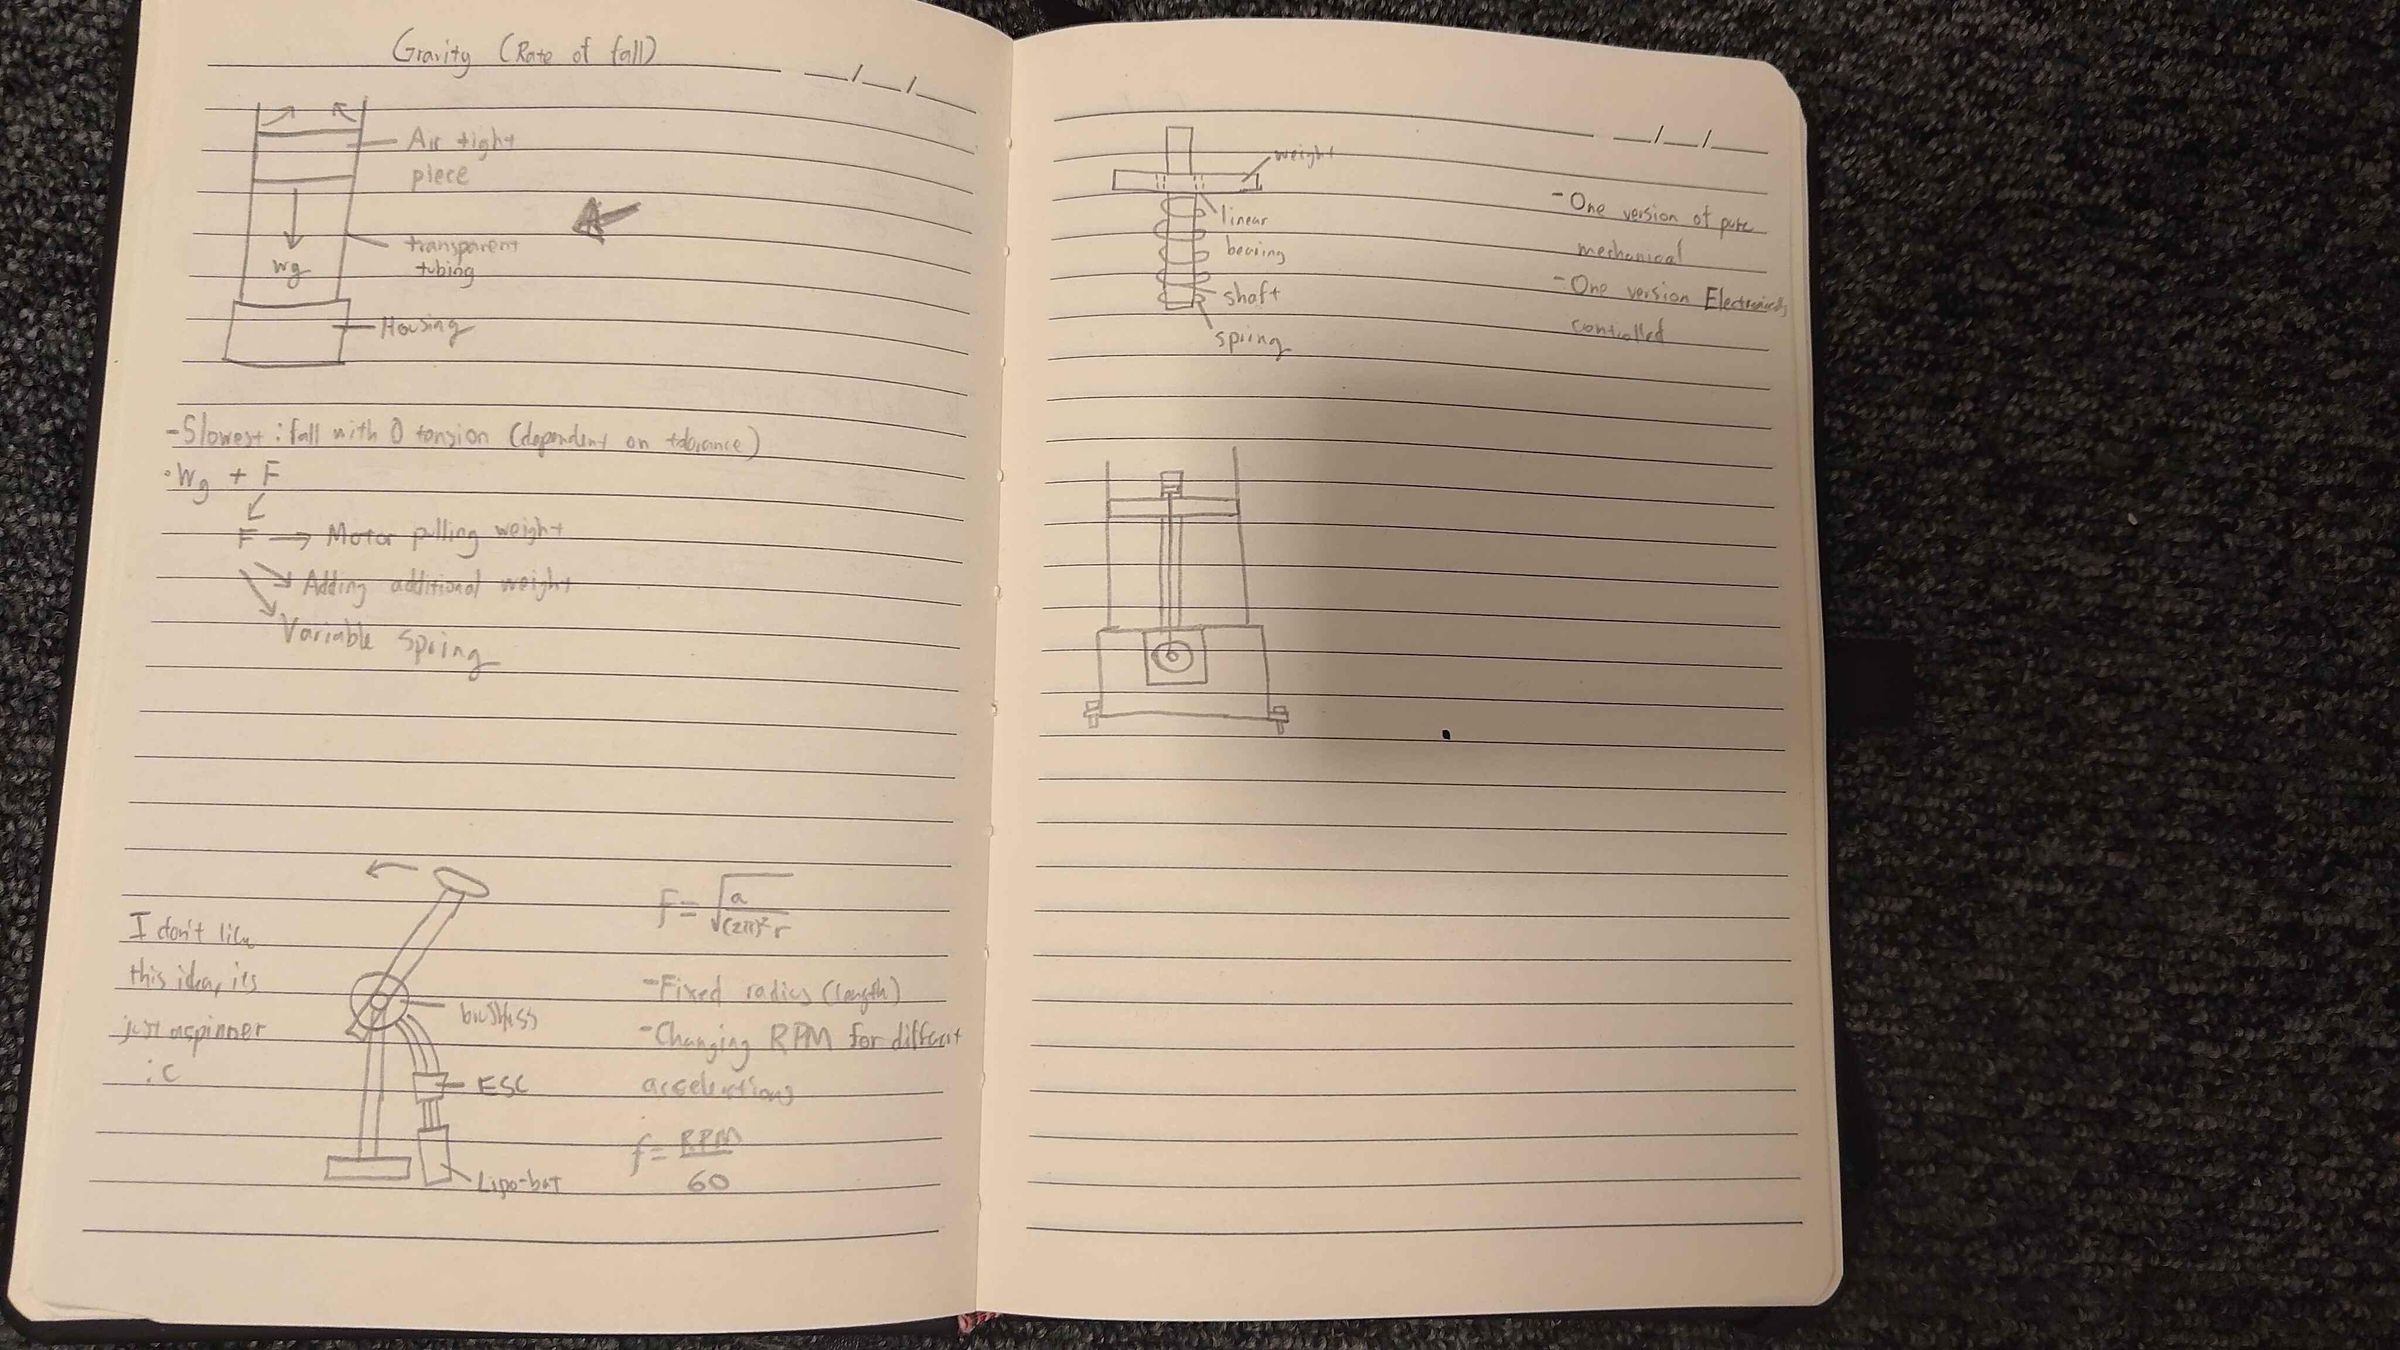 Gravity (Rate of fall)
Air tight
piece
transparent
tubing
Wg
Housing
-Slowest: fall with 0 tension (dependent on tolerance)
·Wg + F
F → Motor pulling weight
Adding additional weight
Variable Spring
I don't like
this idea, its
just a spinner
:C
brushless
ESC
Lipo-bat
F = √a/(2π)²r
-Fixed radius (length)
-Changing RPM for different
accelerations
f = RPM
60
weight
linear
bearing
shaft
spring
-One version of pure
mechanical
-One version Electronically
controlled